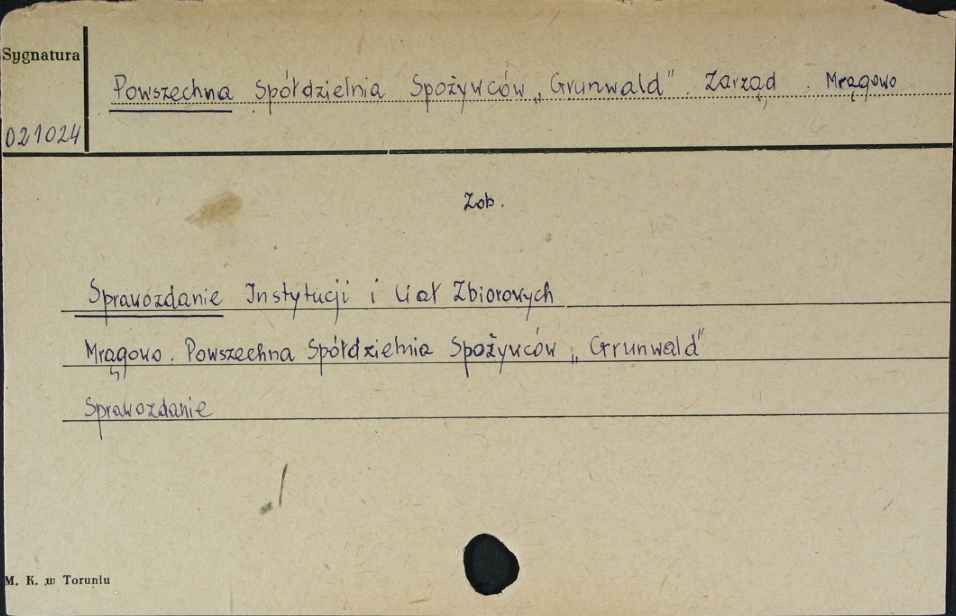 Sygnatura
Powszechna Spółdzielnia Spożywców „Grunwald". Zarząd. Mrągowo
021024
Zob.
Sprawozdanie Instytucji i Ciał Zbiorowych
Mrągowo. Powszechna Spółdzielnia Spożywców „Grunwald"
Sprawozdanie
M. K. w Toruniu